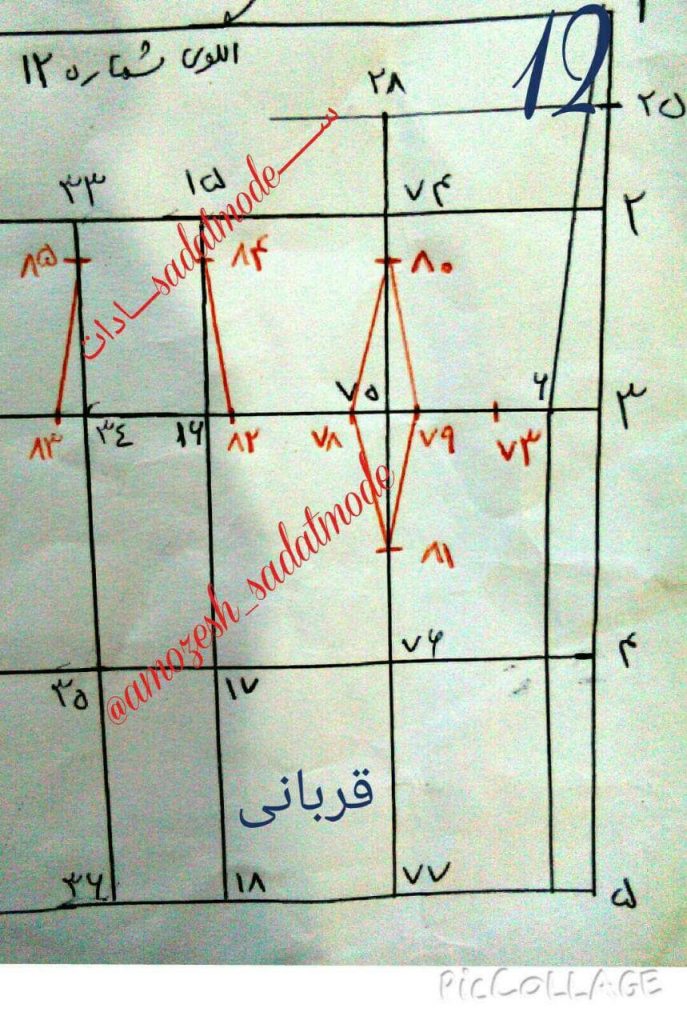 12
الگوی شماره ۱۲
۱
۲۸
۲۵
۳۳
۱۵
۷۴
۲
۸۵
۸۴
۸۰
ســـادات sadatmode
۷۵
۶
۳
۸۳
۳۴
۱۶
۸۲
۷۸
۷۹
۷۳
۸۱
@amozesh_sadatmode
۷۶
۴
۳۵
۱۷
قربانی
۳۶
۱۸
۷۷
۵
PICCOLLAGE